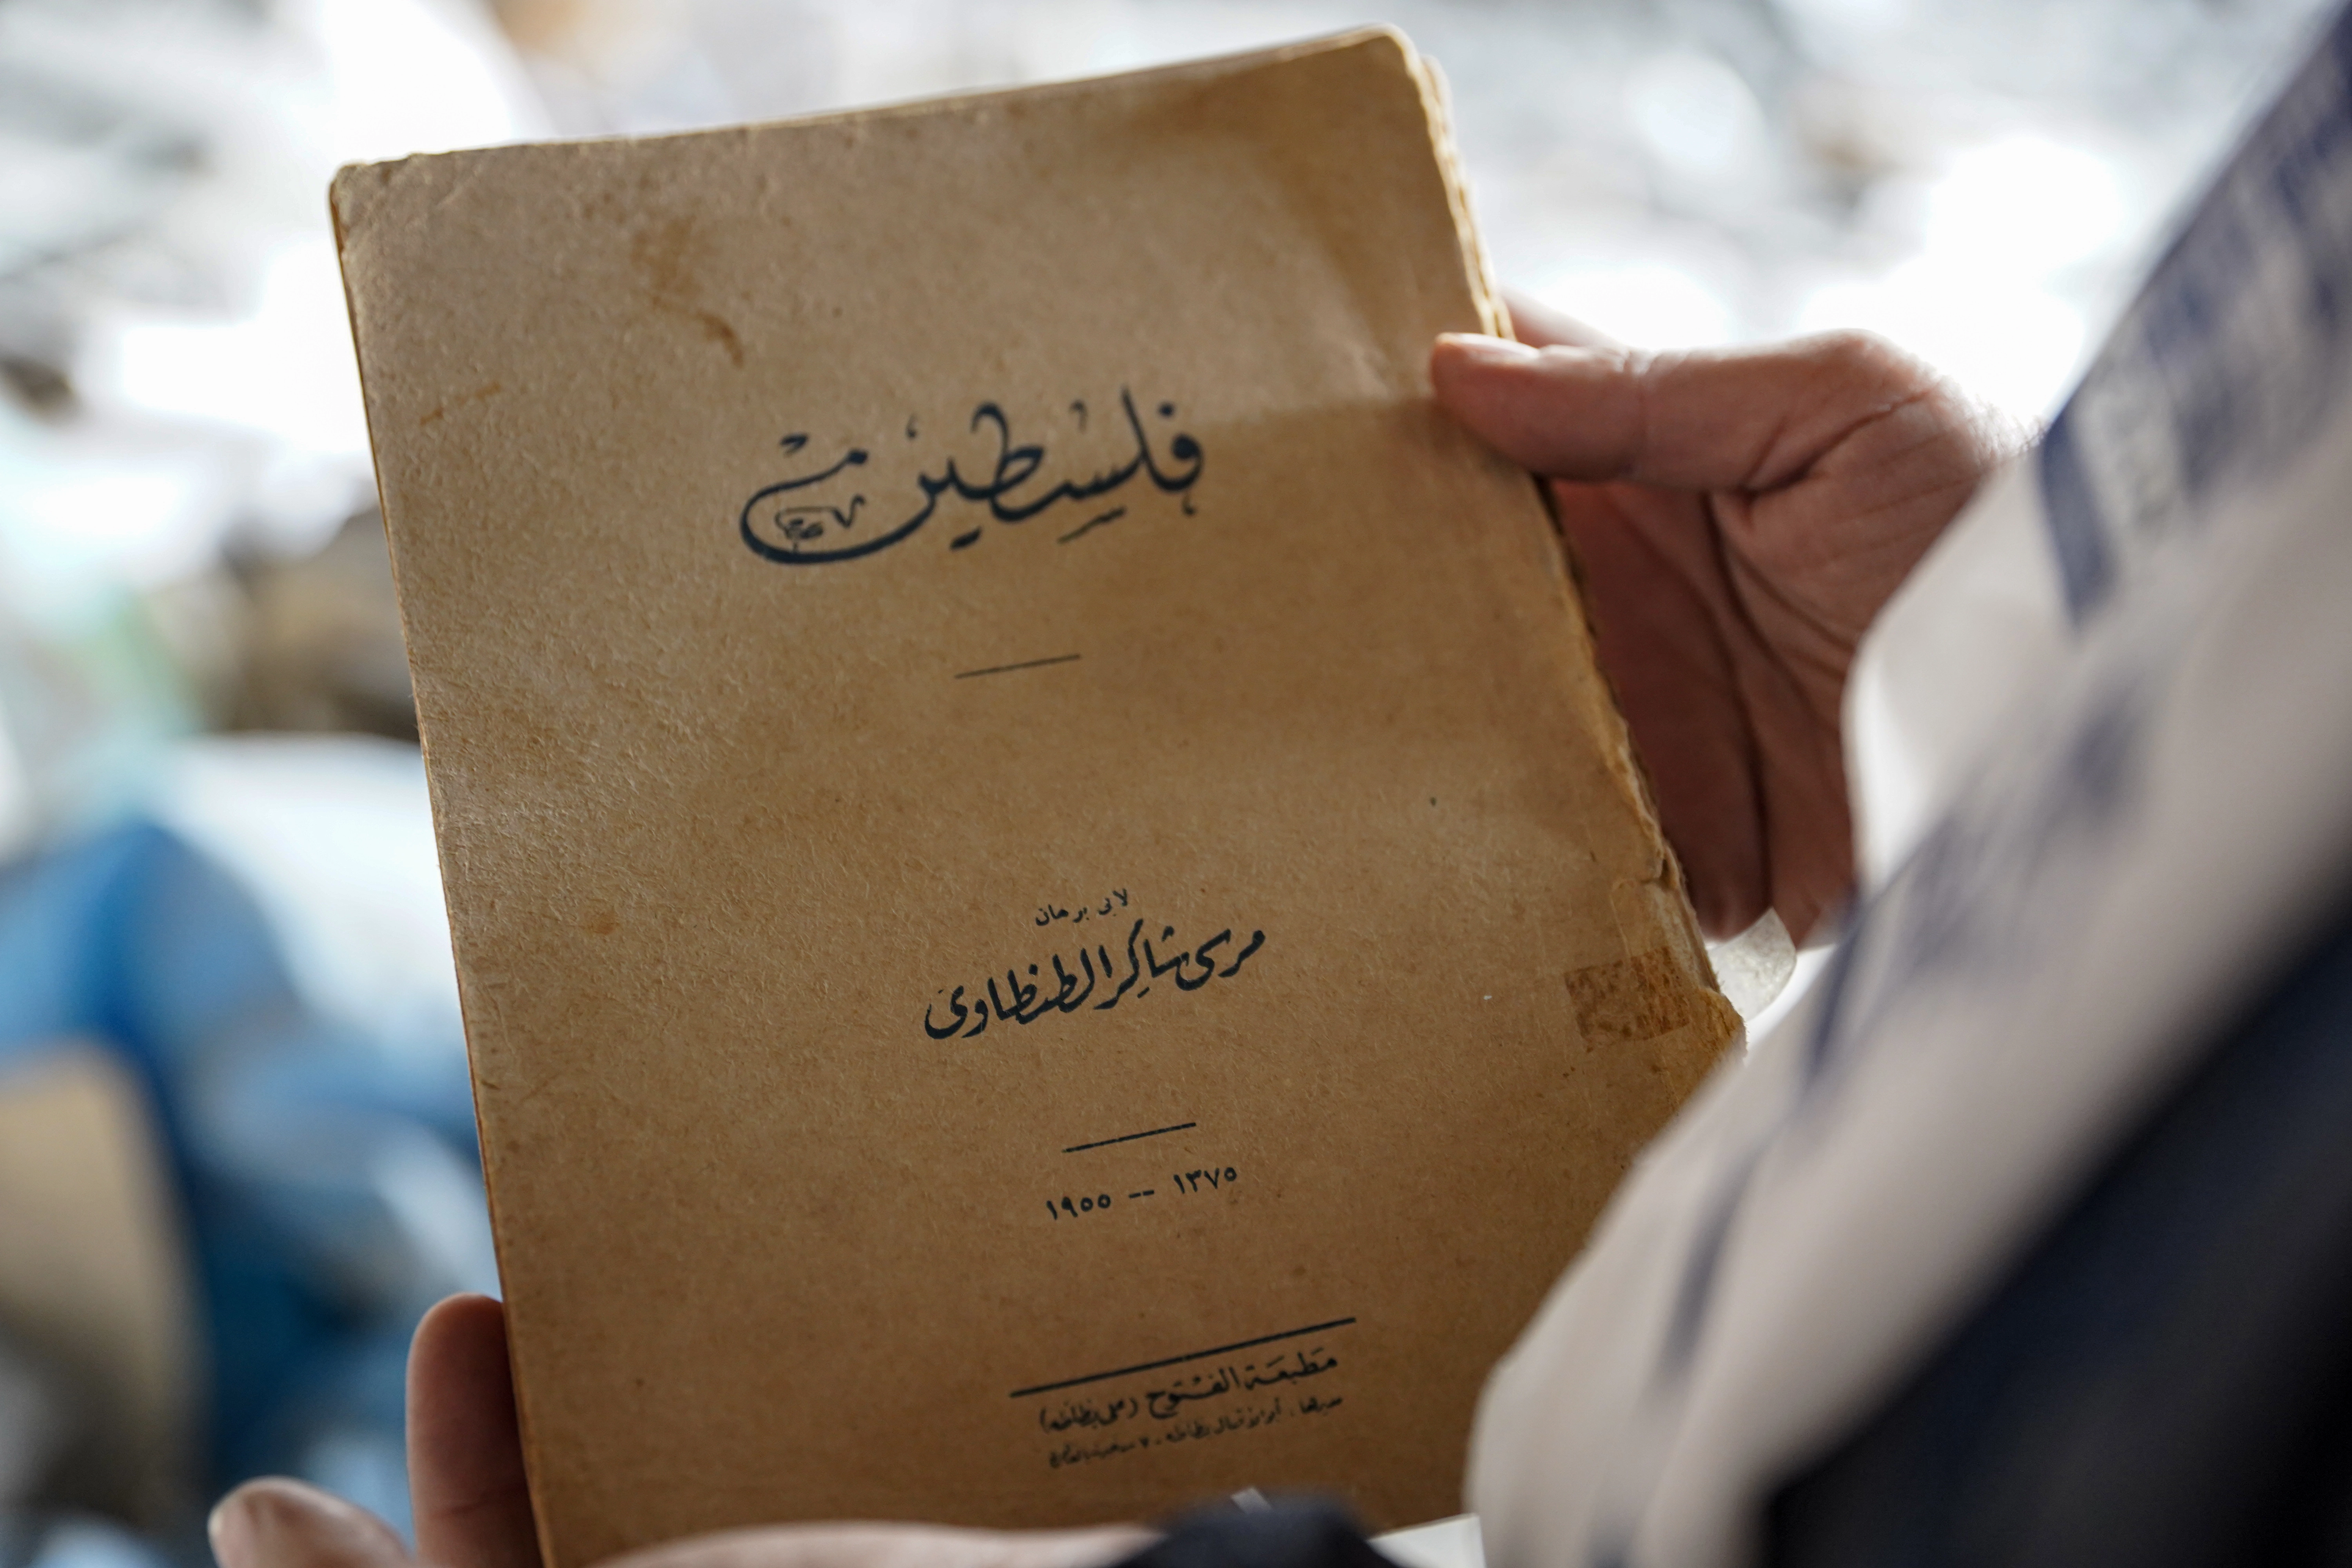 فلسطين
لابى برهان
مرسى شاكر الطنطاوى
١٣٧٥ -- ١٩٥٥
مطبعة الفتوح (على نظافه)